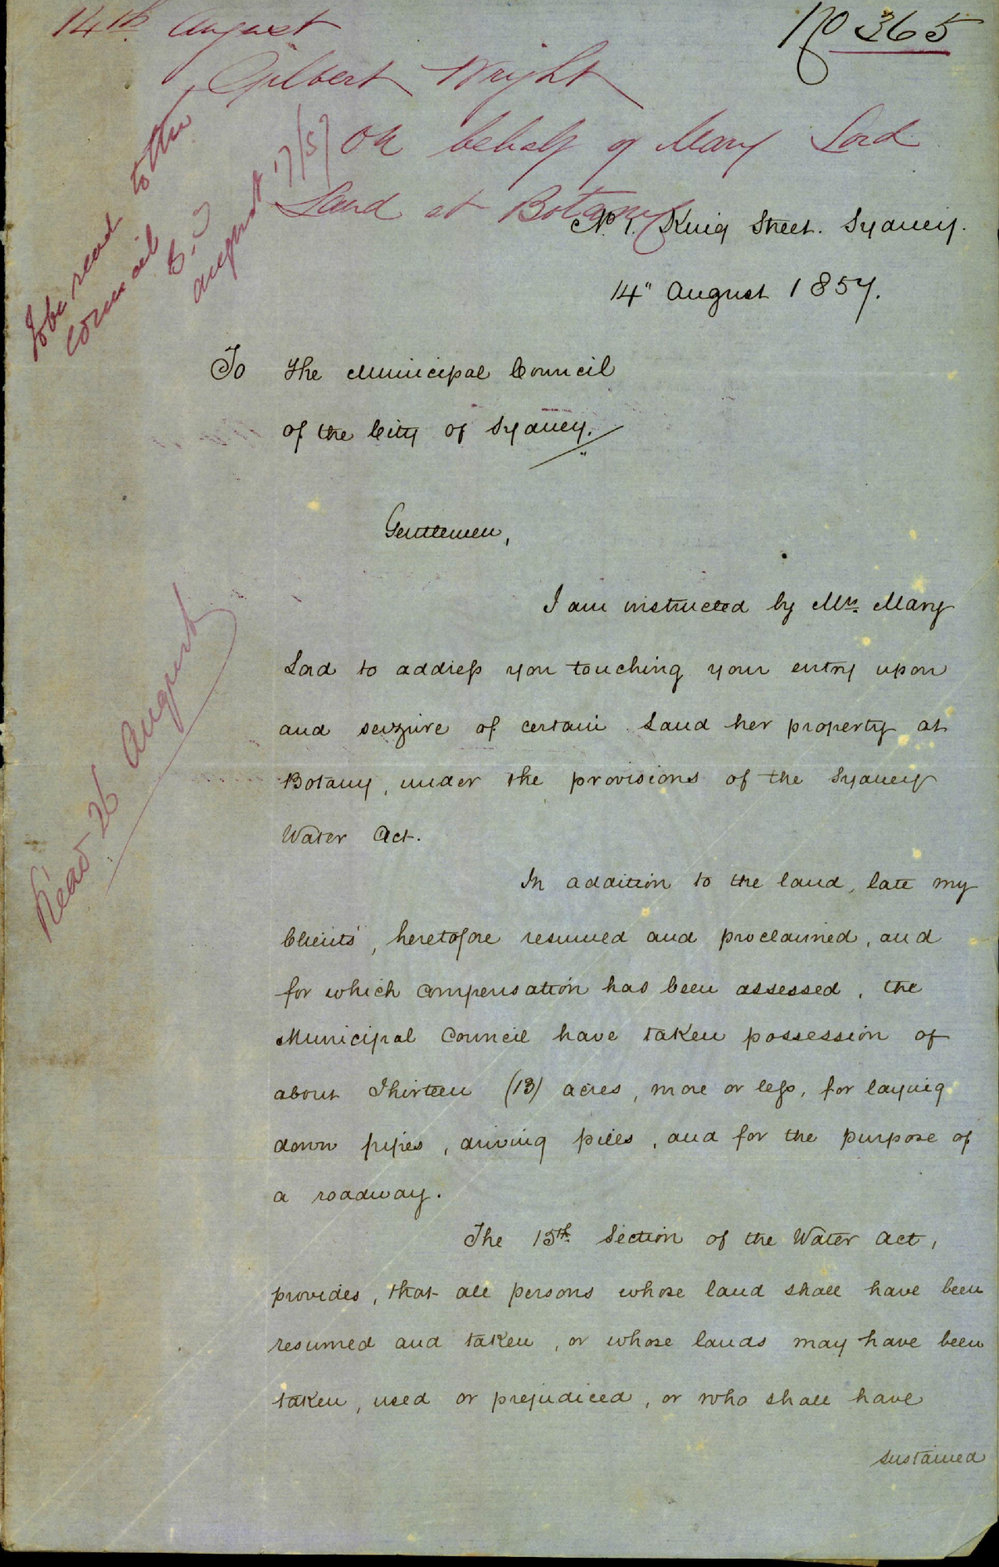 14th August
No 365
Gilbert Wright
on behalf of Mary Lord
Land at Botany
To be read to the
Council
august 17/57
No 1. King Street. Sydney.
14" August 1857.
To The Municipal Council
of the City of Sydney.
Gentlemen,
I am instructed by Mrs. Mary
Lord to address you touching your entry upon
and seizure of certain Land her property at
Botany, under the provisions of the Sydney
Water Act.
Read 26 August
In addition to the land, late my
Clients', heretofore resumed and proclaimed, and
for which compensation has been assessed, the
Municipal Council have taken possession of
about Thirteen (13) acres, more or less, for laying
down pipes, driving piles, and for the purpose of
a roadway.
The 15th. Section of the Water Act,
provides, that all persons whose land shall have been
resumed and taken, or whose lands may have been
taken, used or prejudiced, or who shall have
sustained